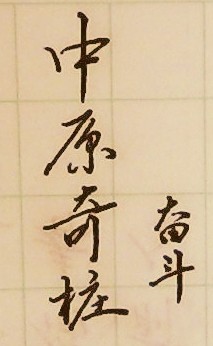 中原奇桩
奋斗